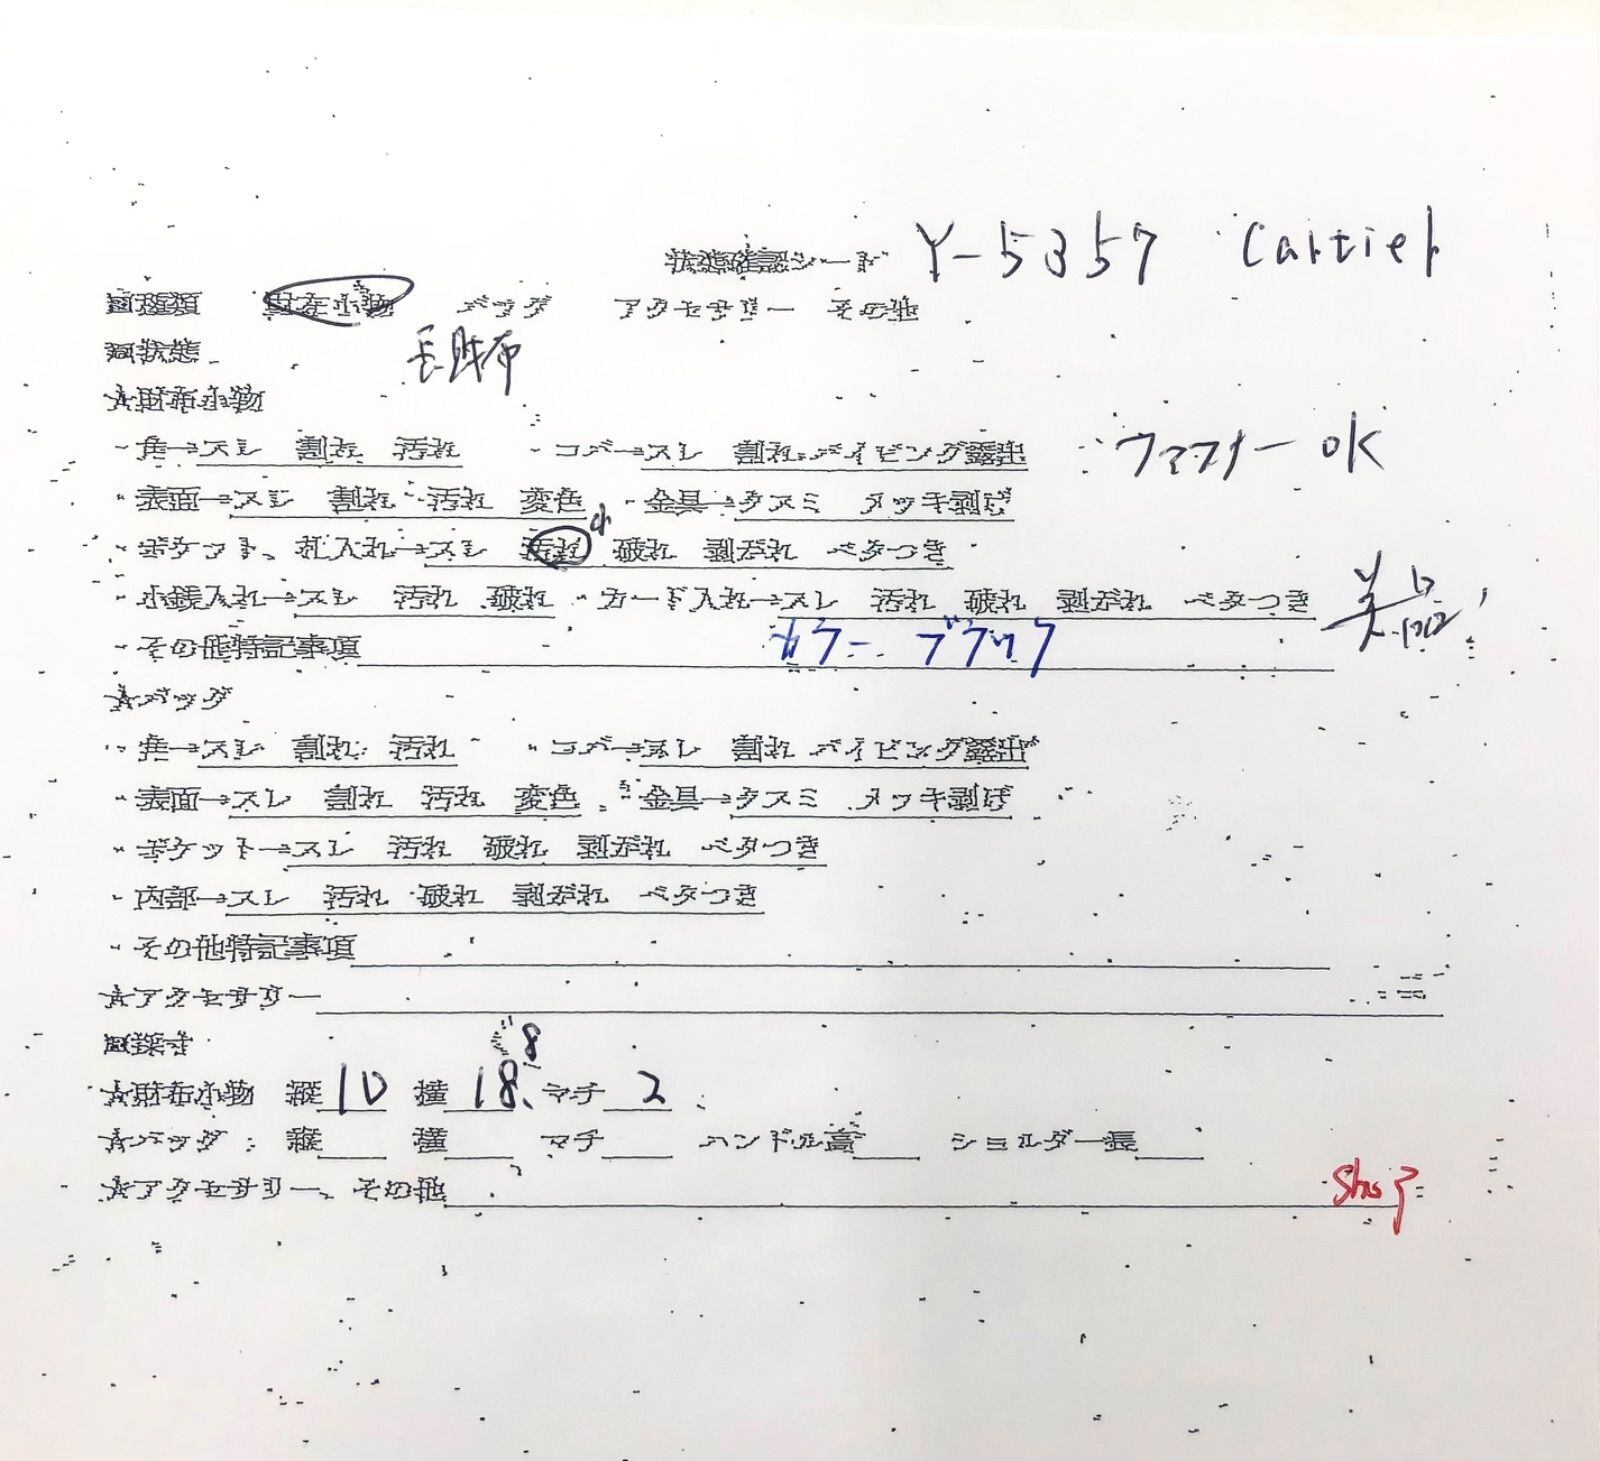 状態確認シート Y-5357 Cartier
回種類 財布小物 バッグ アクセサリー その他
回状態 長財布
☆財布小物
・角→スレ 割れ 汚れ ・コバ→スレ 割れ パイピング露出 ファスナー OK
・表面→スレ 割れ 汚れ 変色 ・金具→クスミ メッキ剥げ
・ポケット、札入れ→スレ 汚れ 小 破れ 剥がれ ベタつき
・小銭入れ→スレ 汚れ 破れ ・カード入れ→スレ 汚れ 破れ 剥がれ ベタつき 美品
・その他特記事項 カラー ブラック
☆バッグ
・角→スレ 割れ 汚れ ・コバ→スレ 割れ パイピング露出
・表面→スレ 割れ 汚れ 変色 ・金具→クスミ メッキ剥げ
・ポケット→スレ 汚れ 破れ 剥がれ ベタつき
・内部→スレ 汚れ 破れ 剥がれ ベタつき
・その他特記事項
☆アクセサリー
回採寸
8
☆財布小物 縦10 横18、マチ2
☆バッグ 縦 横 マチ ハンドル高 ショルダー長
☆アクセサリー、その他